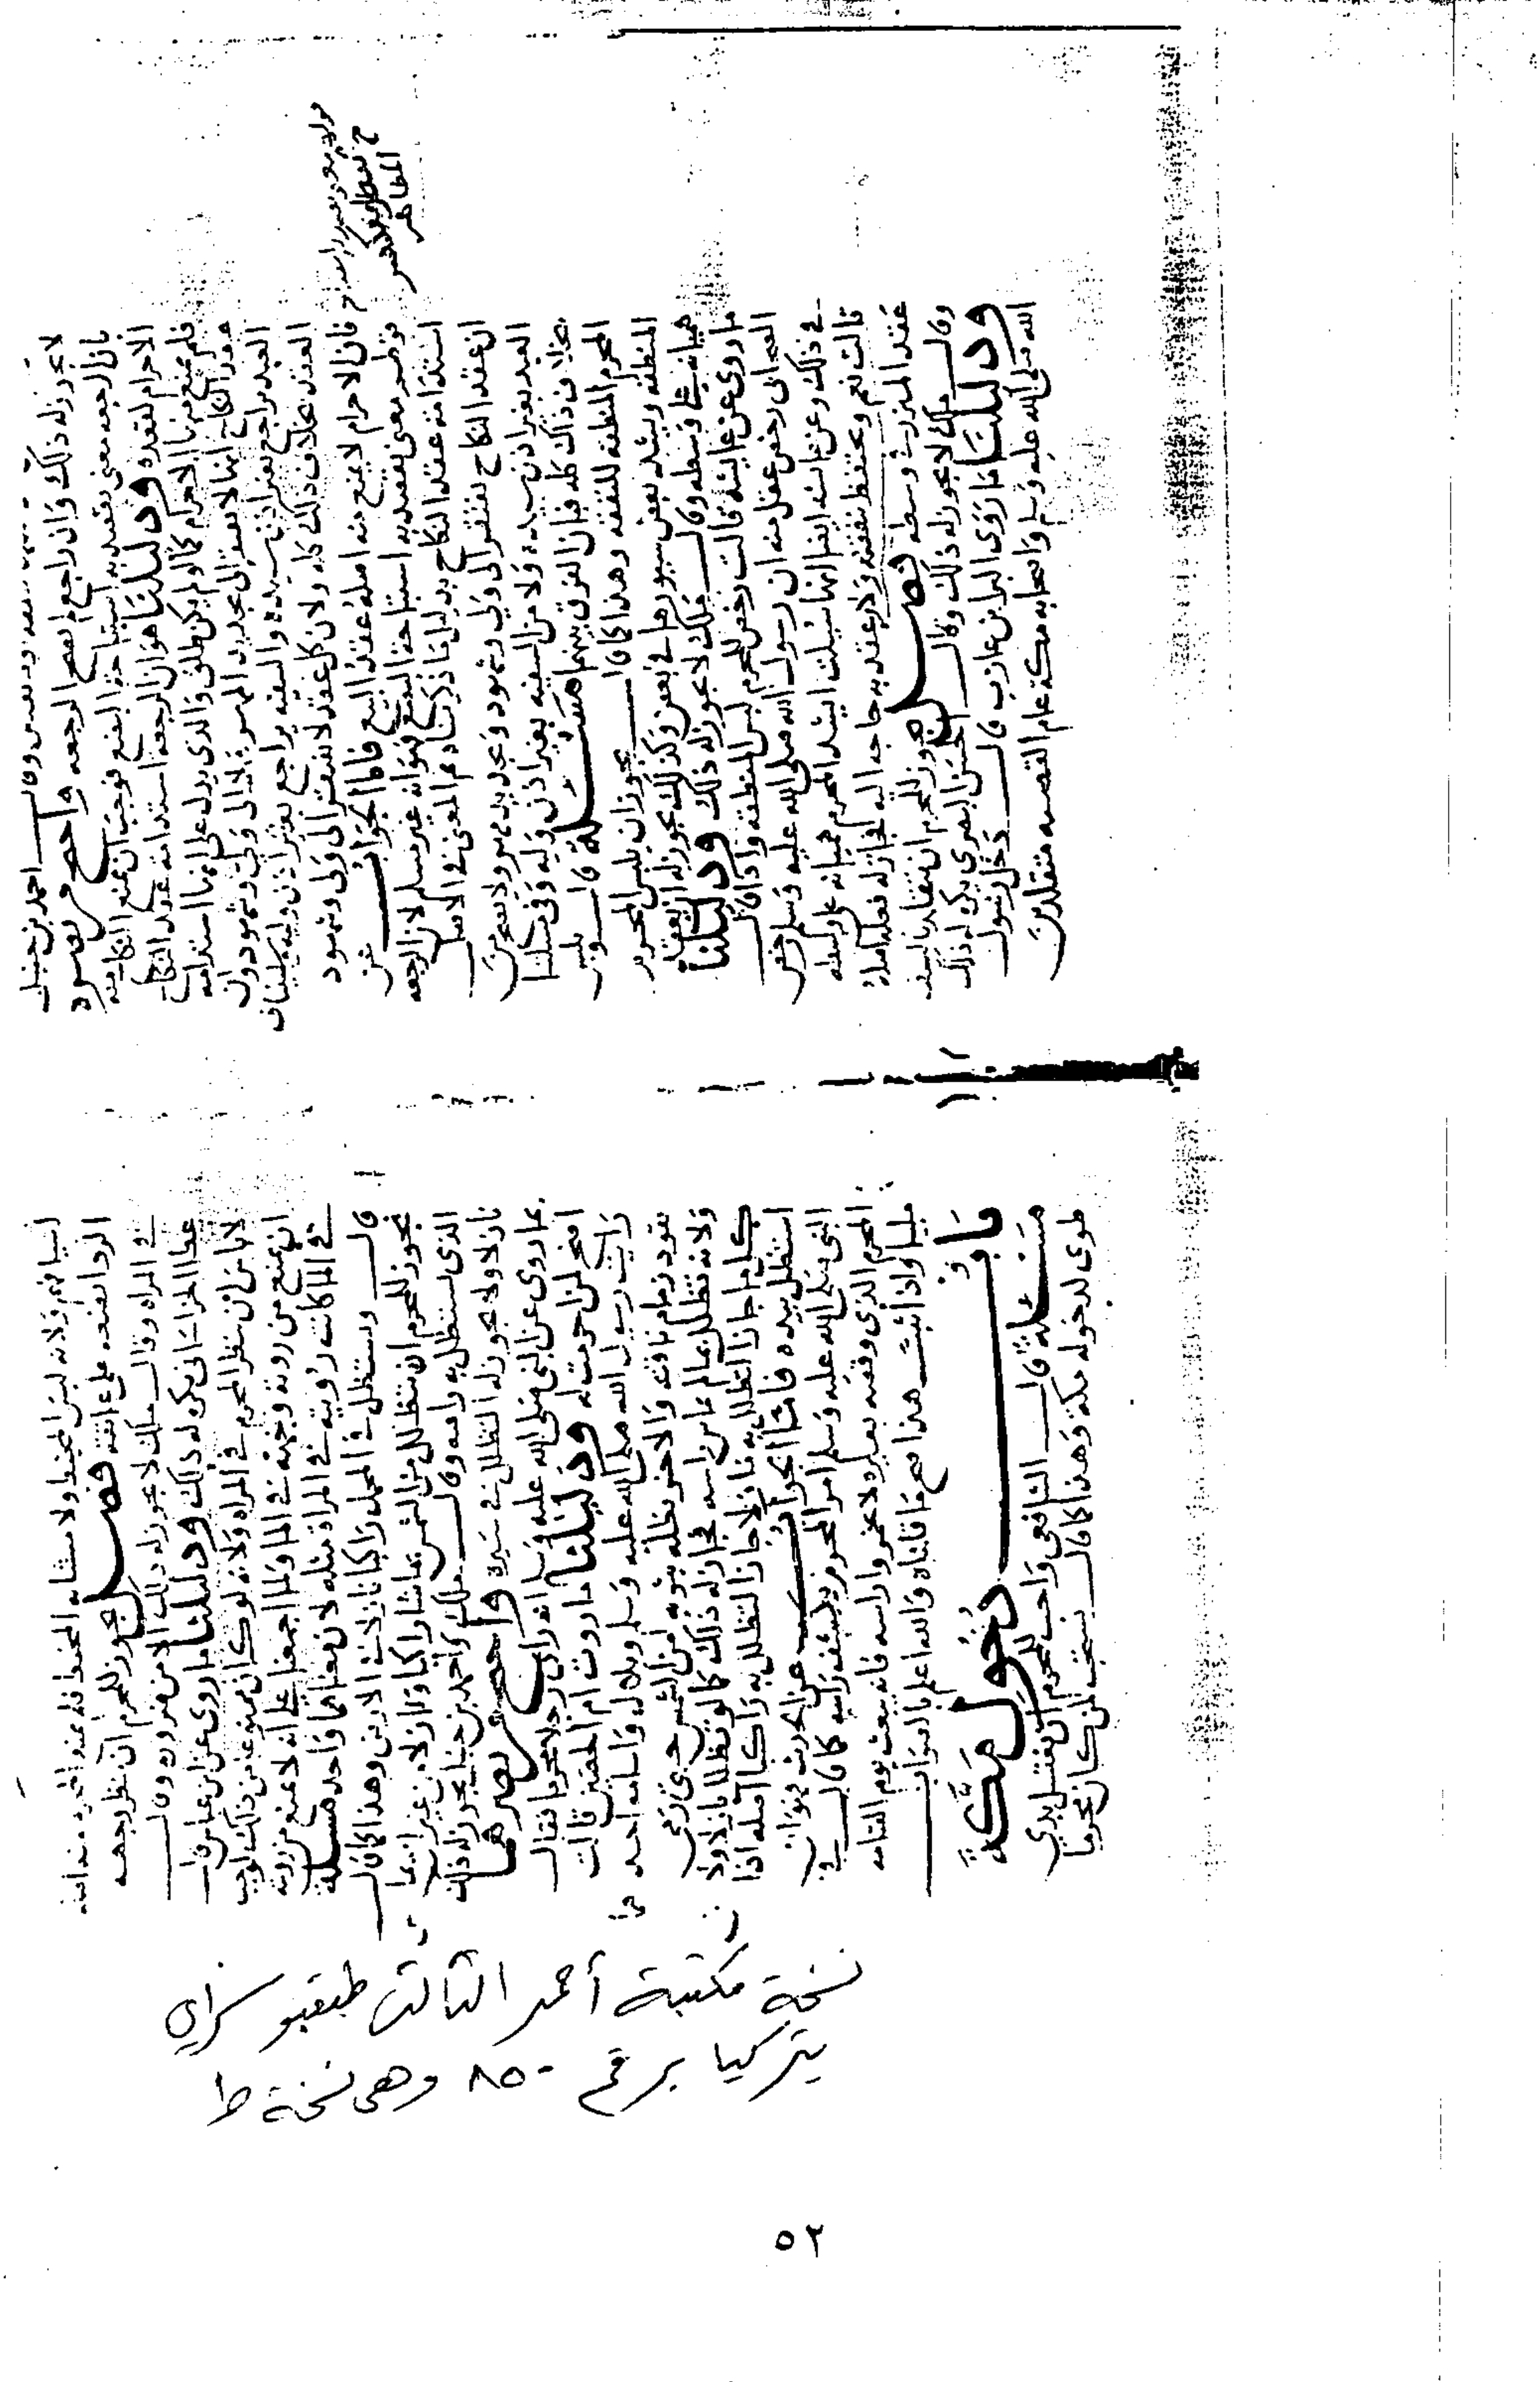 لا يجوز له ذلك وان راجع لم تصح الرجعه واحتج من نصره
بان الرجعه معنى يقصد به استباحة البضع فوجب ان يمنع
الاحرام لعقده ودليلنا هو ان الرجعه استدامه عقد النكاح
فلم يمنع منها الاحرام كما لو لم يكن طلق والذي يدل على انها استدامه
عقد النكاح انها لا تفتقر الى تجديد المهر ولا الى ولي وشهود وان
العبد يراجع بغير اذن سيده والسفيه يراجع بغير اذن وليه
العقد بخلاف ذلك كله ولان كل عقد لا يفتقر الى ولي وشهود
فان الاحرام لا يمنع منه اصله عقد البيع فاما الجواب عن
قولهم معنى يقصد به استباحة البضع فهو انه غير مسلم لان الرجعه
استدامة عقد النكاح بدليل ما ذكرنا ثم المعنى في الاصل
ان عقد النكاح يفتقر الى ولي وشهود وتجديد مهر ولا يصح من
العبد بغير اذن سيده ولا من السفيه بغير اذن وليه وفي مسئلتنا
بخلاف ذلك كله فبان الفرق بينهما مسئلة قال ويلبس
المحرم المنطقه للنفقه وهذا كما قال يجوز ان يلبس المحرم
المنطقه ويشد بعض سيورها في بعض وكذلك يجوز له ان يعقد
هميانه على وسطه وقال مالك لا يجوز له ذلك ودليلنا
ما روي عن عايشه قالت رخص للمحرم لبس المنطقه واذا قال
الصحابي رخص عقل منه ان رسول الله صلى الله عليه وسلم رخص
في ذلك وعن عايشه ايضا انها سئلت ايشد المحرم هميانه على وسطه
قالت نعم ويحتفظ بنفقته ولانه عقد به حاجه اليه فجاز له فعله اصله
عقد المئزر في وسطه فصل يجوز للمحرم ان يتقلد بالسيف
وقال مالك لا يجوز له ذلك وقال الحسن البصري يكره له ذلك
ودليلنا ما روى البراء بن عازب قال دخل رسول
الله صلى الله عليه وسلم واصحابه مكة عام القضيه متقلدين
في المراه وقال مالك لا يجوز له ذلك الا من ضروره وقال
عطا الخراساني يكره له ذلك ودليلنا ما روي عن ابن عباس قال
لا باس ان ينظر المحرم في المراه ولانه لو كان ممنوعا من ذلك لوجب
ان يمنع من رويه وجهه في الما ولما اجمعنا على انه لا يمنع من رويه
في الما كانت رؤيته في المراه مثله لان معناهما واحد مسئلة
قال ويستظل في المحمل راكبا ونازلا في الارض وهذا كما قال
يجوز للمحرم ان يتظلل من الشمس بما شا راكبا ونازلا من غير
الذي يستظل به راسه وقال مالك واحمد بن حنبل يجوز له ذلك
نازلا ولا يجوز له التظلل في سيره واحتج من نصرهما
بما روي عن النبي صلى الله عليه وسلم انه راى رجلا محرما فقال
اضح لمن احرمت له ودليلنا ما روت ام الحصين قالت
رايت رسول الله صلى الله عليه وسلم وبلال واسامه احدهما
يقود زمام ناقته والاخر يظله بثوبه من الشمس حتى رمى
ولانه تظلل بما لم يماس راسه فجاز له ذلك كما لو تظلل نازلا ولان
كل ما جاز التظلل به نازلا جاز التظلل به راكبا اصله اذا
استظل بيده فاما الجواب عن الحديث فهو ان
النبي صلى الله عليه وسلم امر المحرم بكشف راسه كما قال في
المحرم الذي وقصه بعيره لا تخمروا راسه فانه يبعث يوم القيامه
ملبيا واذا ثبت هذا صح ما قلناه والله اعلم بالصواب
باب في دخول مكة
مسئلة قال الشافعي واحب للمحرم ان يغتسل بذي
طوى لدخوله مكة وهذا كما قال يستحب لمن كان محرما
نسخة مكتبة أحمد الثالث طبقبو سراي
بتركيا برقم ٨٥٠ وهى نسخة ط
٥٢